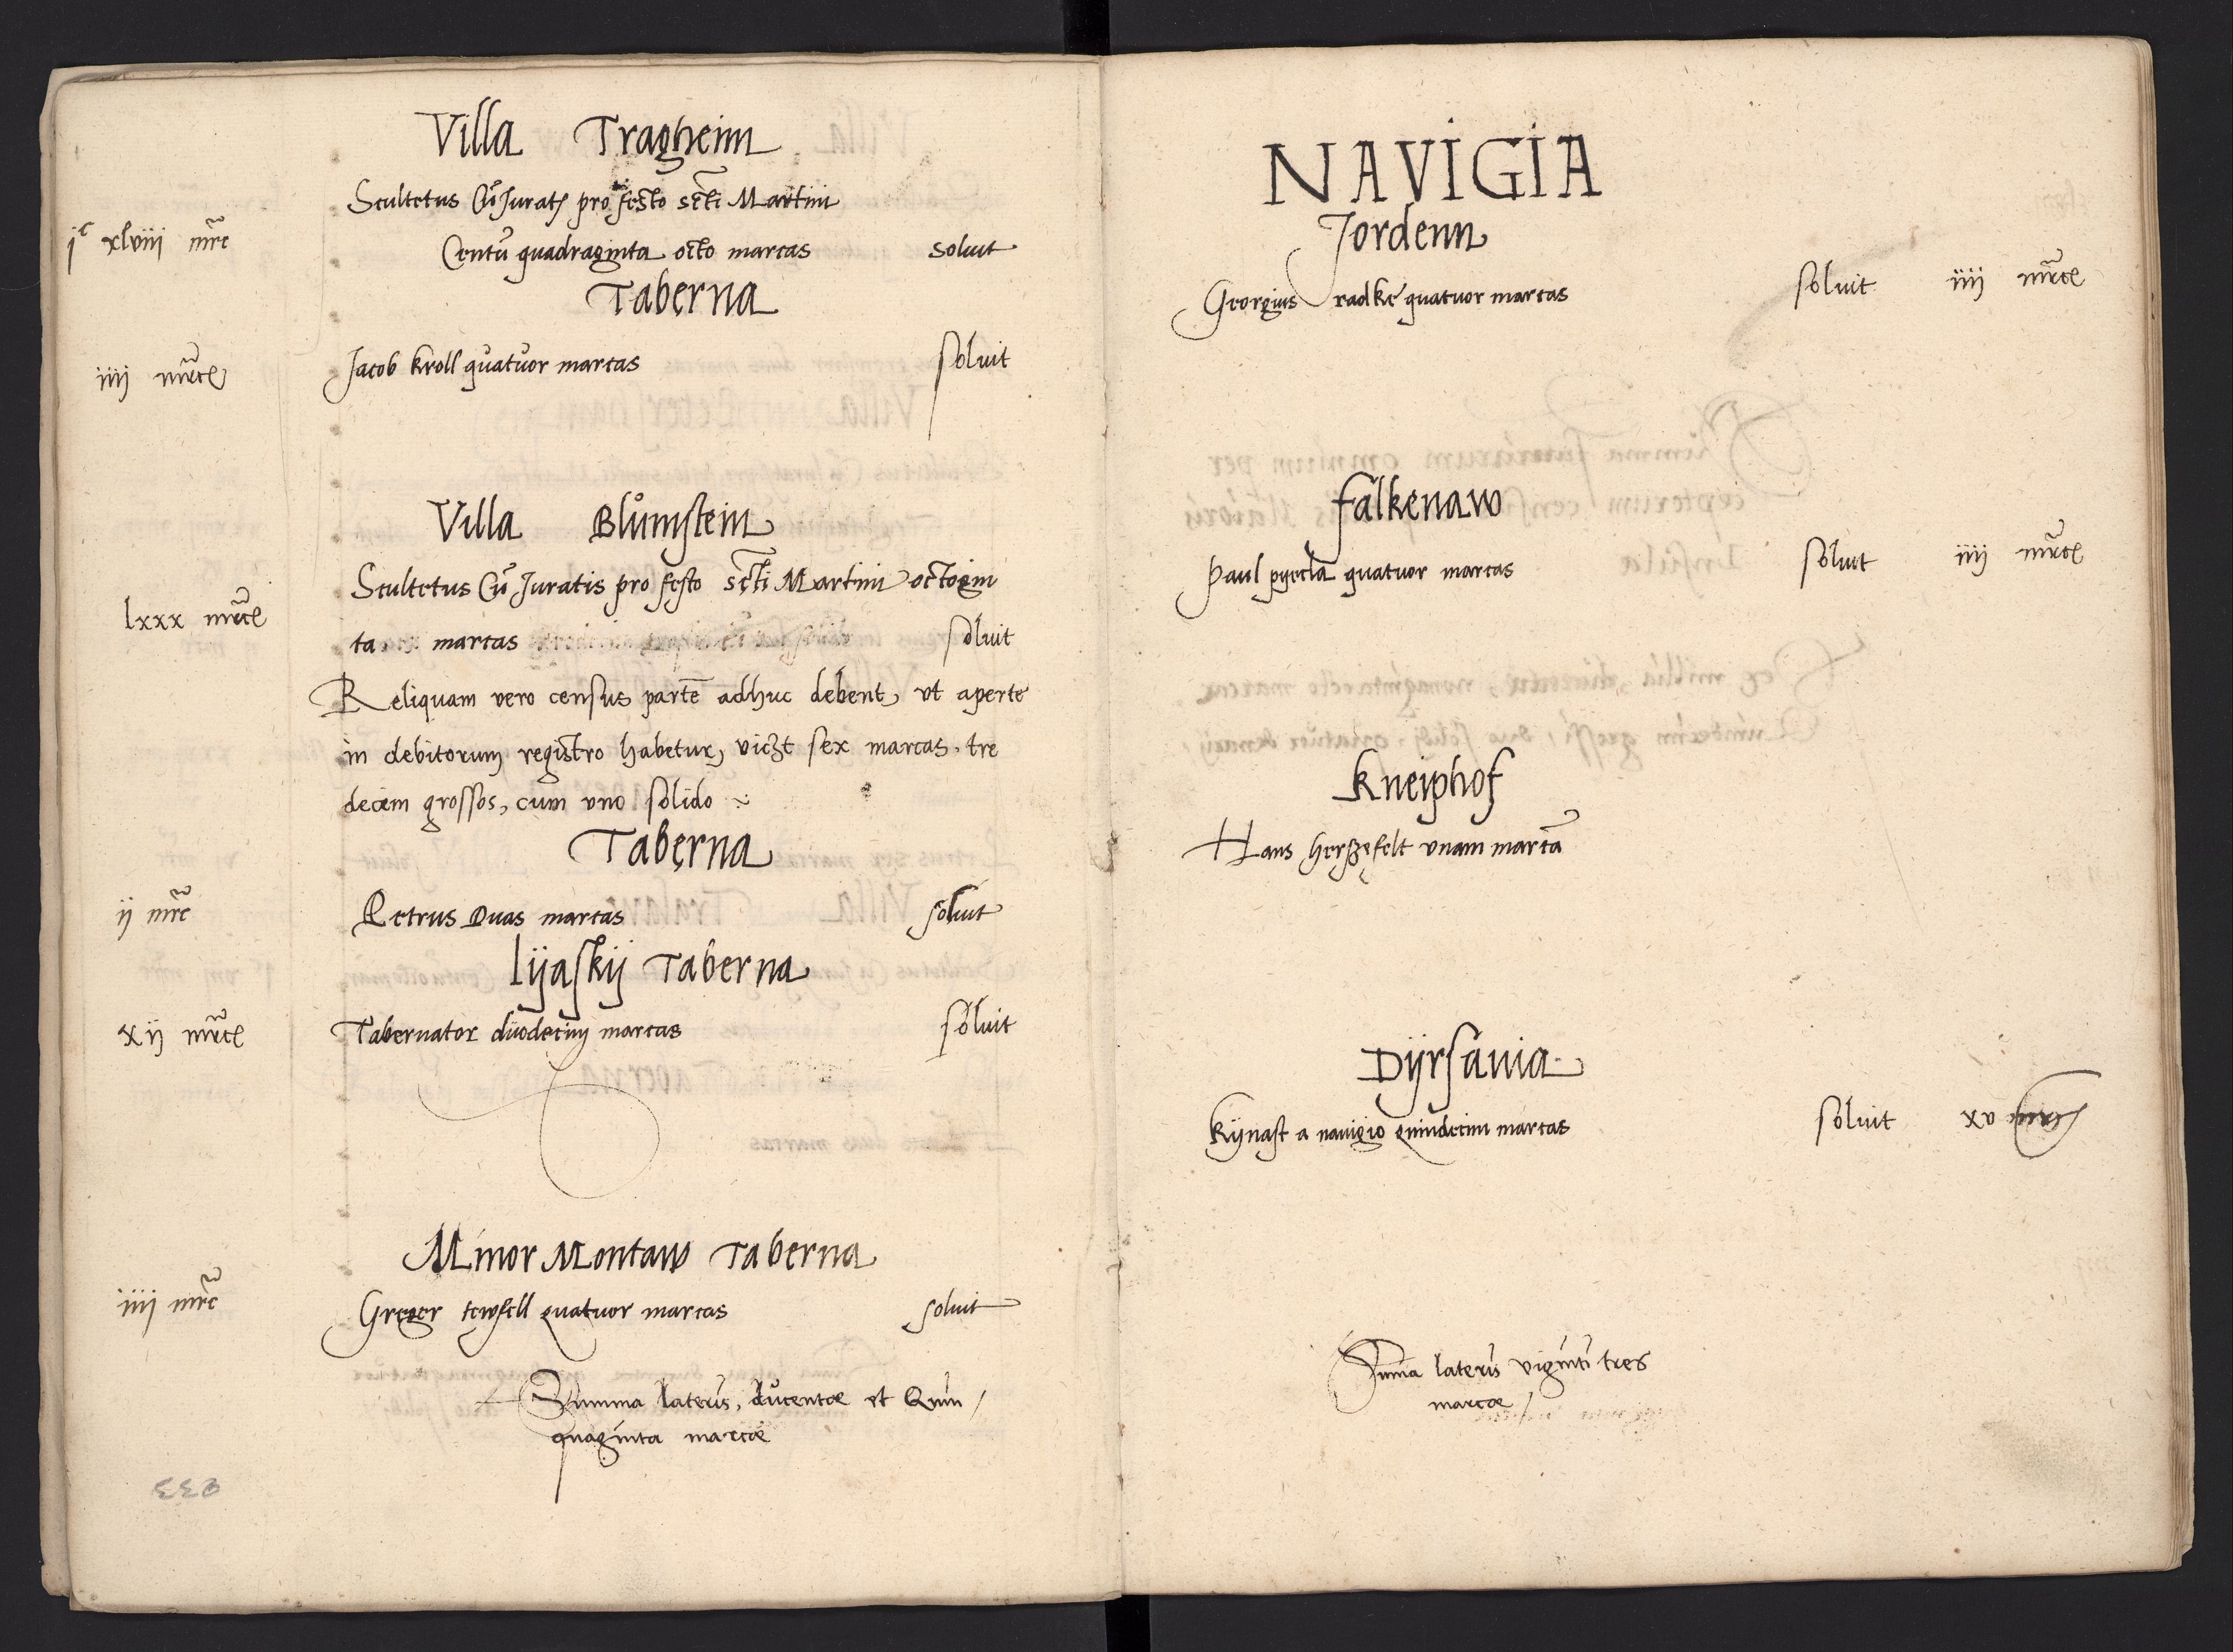 Villa Tragheim
Scultetus Cũ Juratꝭ pro festo sc̃ti Martini
jᶜ xlviij mr̃c Centũ quadraginta octo marcas soluit
Taberna
iiij mr̃ce Jacob kroll quatuor marcas soluit
Villa Blůmstein
Scultetus Cũ Juratis pro festo sc̃ti Martini octogin
lxxx mr̃ce ta marcas soluit
Reliquam vero census partẽ adhuc debent, vt aperte
in debitorum registro habetur, vicꝫt sex marcas tre
decem grossos, cum vno solido
Taberna
ij mr̃c Petrus Duas marcas soluit
lijaskij Taberna
xij mr̃ce Tabernator duodecim marcas soluit
Minor Montaw Taberna
iiij mr̃c Greger tewfell quatuor marcas soluit
Summa lateris, ducentæ et Quin /
quaginta marcæ
NAVIGIA
Jordenn
Georgius radke quatuor marcas soluit iiij mr̃ce
falkenaw
Paul pyecla quatuor marcas soluit iiij mr̃ce
kneiphof
Hans herßefelt vnam marcã
Dijrsauia
kijnast a nauigio quindecim marcas soluit xv
Sum̃a lateris viginti tres
marcæ /